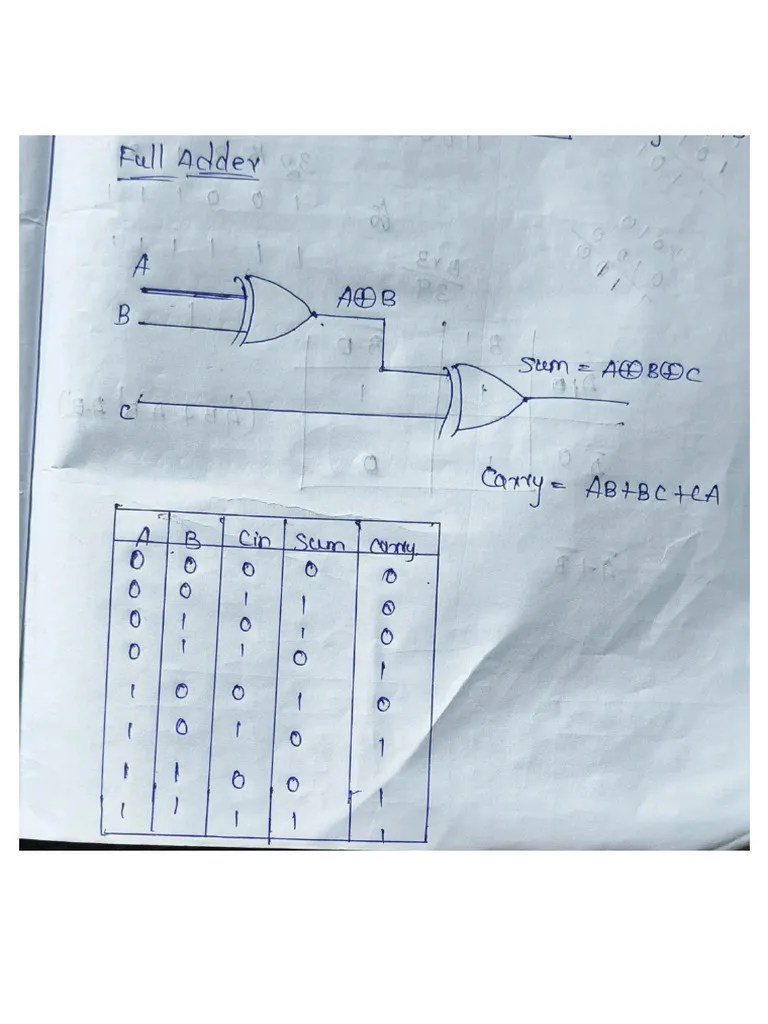 Full Adder
A
B
A⊕B
C
Sum = A⊕B⊕C
Carry = AB+BC+CA
A B Cin Sum carry
0 0 0 0 0
0 0 1 1 0
0 1 0 1 0
0 1 1 0 1
1 0 0 1 0
1 0 1 0 1
1 1 0 0 1
1 1 1 1 1